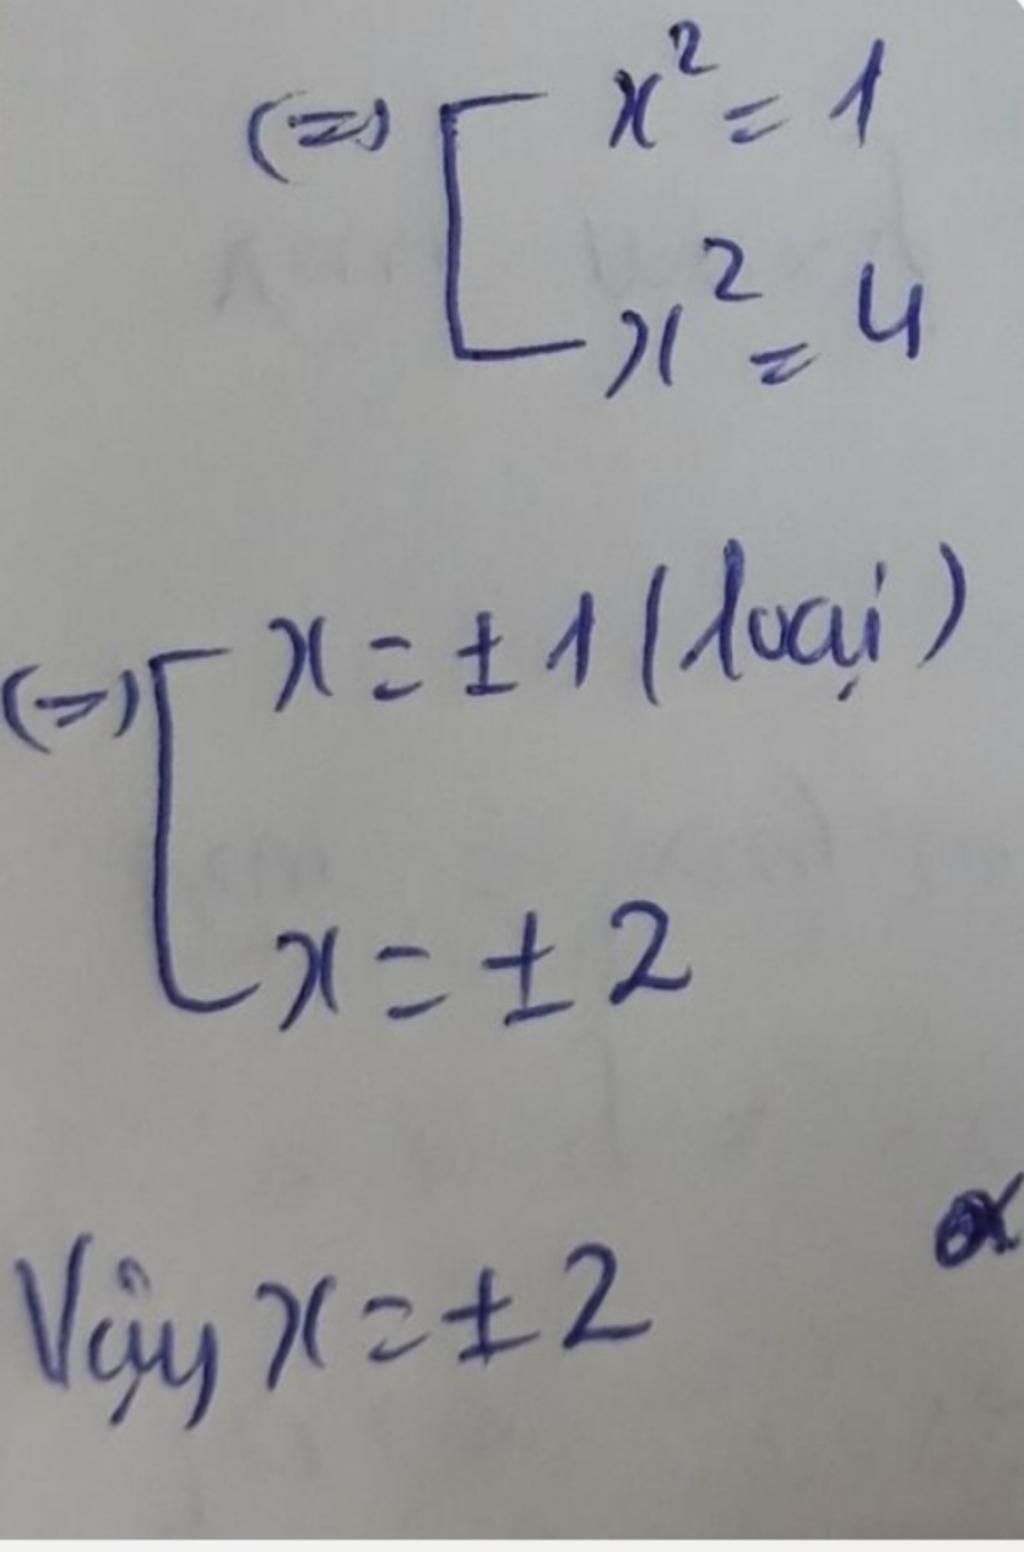 (=) [ x² = 1
x² = 4
(=) [ x = ± 1 (loại)
x = ± 2
Vậy x = ± 2